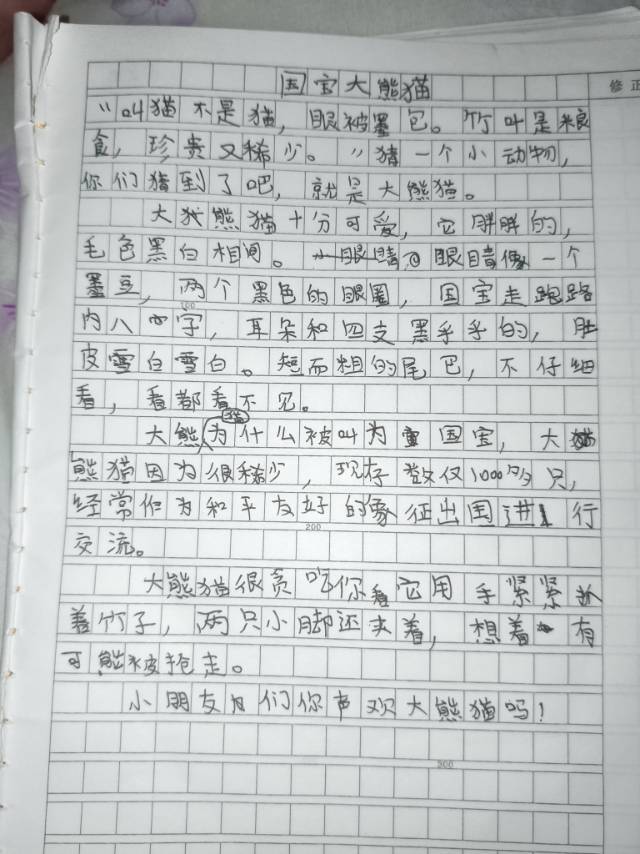 国宝大熊猫
修正
"叫猫不是猫，眼被墨包。竹叶是粮
食，珍贵又稀少。"猜一个小动物，
你们猜到了吧，就是大熊猫。
大熊猫十分可爱，它胖胖的，
毛色黑白相间。眼睛像一个
墨豆，两个黑色的眼圈，国宝走跑路
内八字，耳朵和四支黑乎乎的，肚
皮雪白雪白。短而粗的尾巴，不仔细
看，看都看不见。
100
大熊猫为什么被叫为国宝，大
熊猫因为很稀少，现存数仅1000多只，
经常作为和平友好的象征出国进行
200
交流。
大熊猫很贪吃你看它用手紧紧
着竹子，两只小脚还夹着，想着有
可熊被抢走。
小朋友们你声欢大熊猫吗！
300